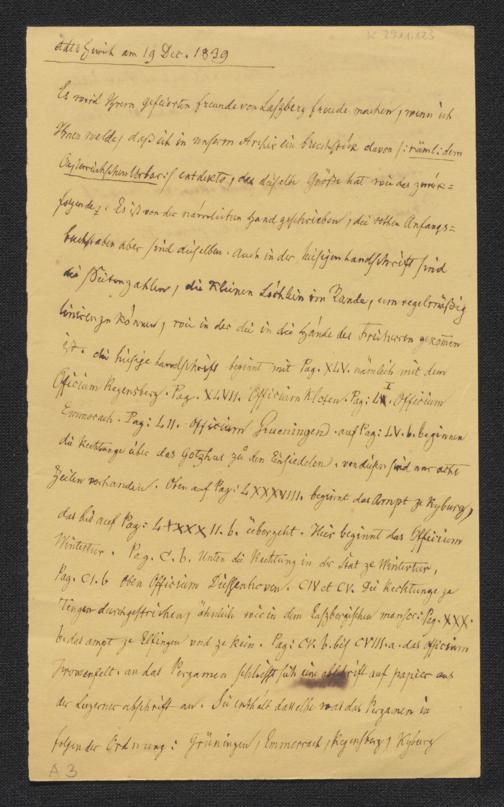 K 2911.123
Zürich am 19 Dec. 1839
Es wird Ihrem gefeierten Freunde von Laßberg Freude machen, wenn ich
Ihnen melde, daß ich in unserm Archiv ein Bruchstück davon /: näml: dem
Oesterreichschen Urbar :/ entdekte, das dieselbe Größe hat wie das zurük=
folgende. Es ist von der nämlichen Hand geschrieben, die rothen Anfangs=
buchstaben aber sind dieselben. Auch in der hiesigen Handschrift sind
die Seitenzahlen, die kleinen Löchlein im Rande, um regelmäßig
linieren zu können, wie in der die in die Hände des Freiherrn gekommen
ist. die hiesige Handschrift beginnt mit Pag. XLV. nämlich mit dem
Officium Regensberg. Pag. XLVII. Officium Kloten. Pag: LI. Officium
Emmerach. Pag: LII. Officium Grueningen. auf Pag: LV. b. beginnen
die Rechtunge über das Gotzhus zu den Einsidelen. von dieser sind nur acht
Zeilen vorhanden. Oben auf Pag: LXXXVIII. beginnt das Ampt ze Kyburg,
das bis auf Pag: LXXXXII. b. übergeht. Hier beginnt das Officium
Wintertur. Pag. C. b. Unten die Rechtung in der Stat ze Wintertur,
Pag. CI. b Oben Officium Diessenhoven. CIV et CV. Die Rechtunge ze
Tengen durchgestrichen, ähnlich wie in dem Laßbergischen manscr: Pag. XXX.
b. das ampt ze Elfingen und ze Rein. Pag: CV. b. bis CVIII. a. das officium
Frowenfelt. an das Pergamen schließt sich eine abschrift auf papier aus
der Luzerner abschrift an. Sie enthält dasselbe was das Pergamen in
folgender Ordnung: Grüningen, Emmerach, Regensberg, Kyburg
A 3